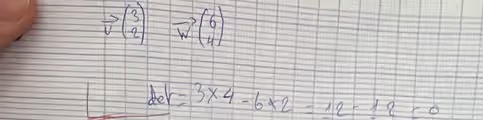 v⃗ (3 2) w⃗ (6 4)
det = 3×4 - 6×2 = 12 - 12 = 0